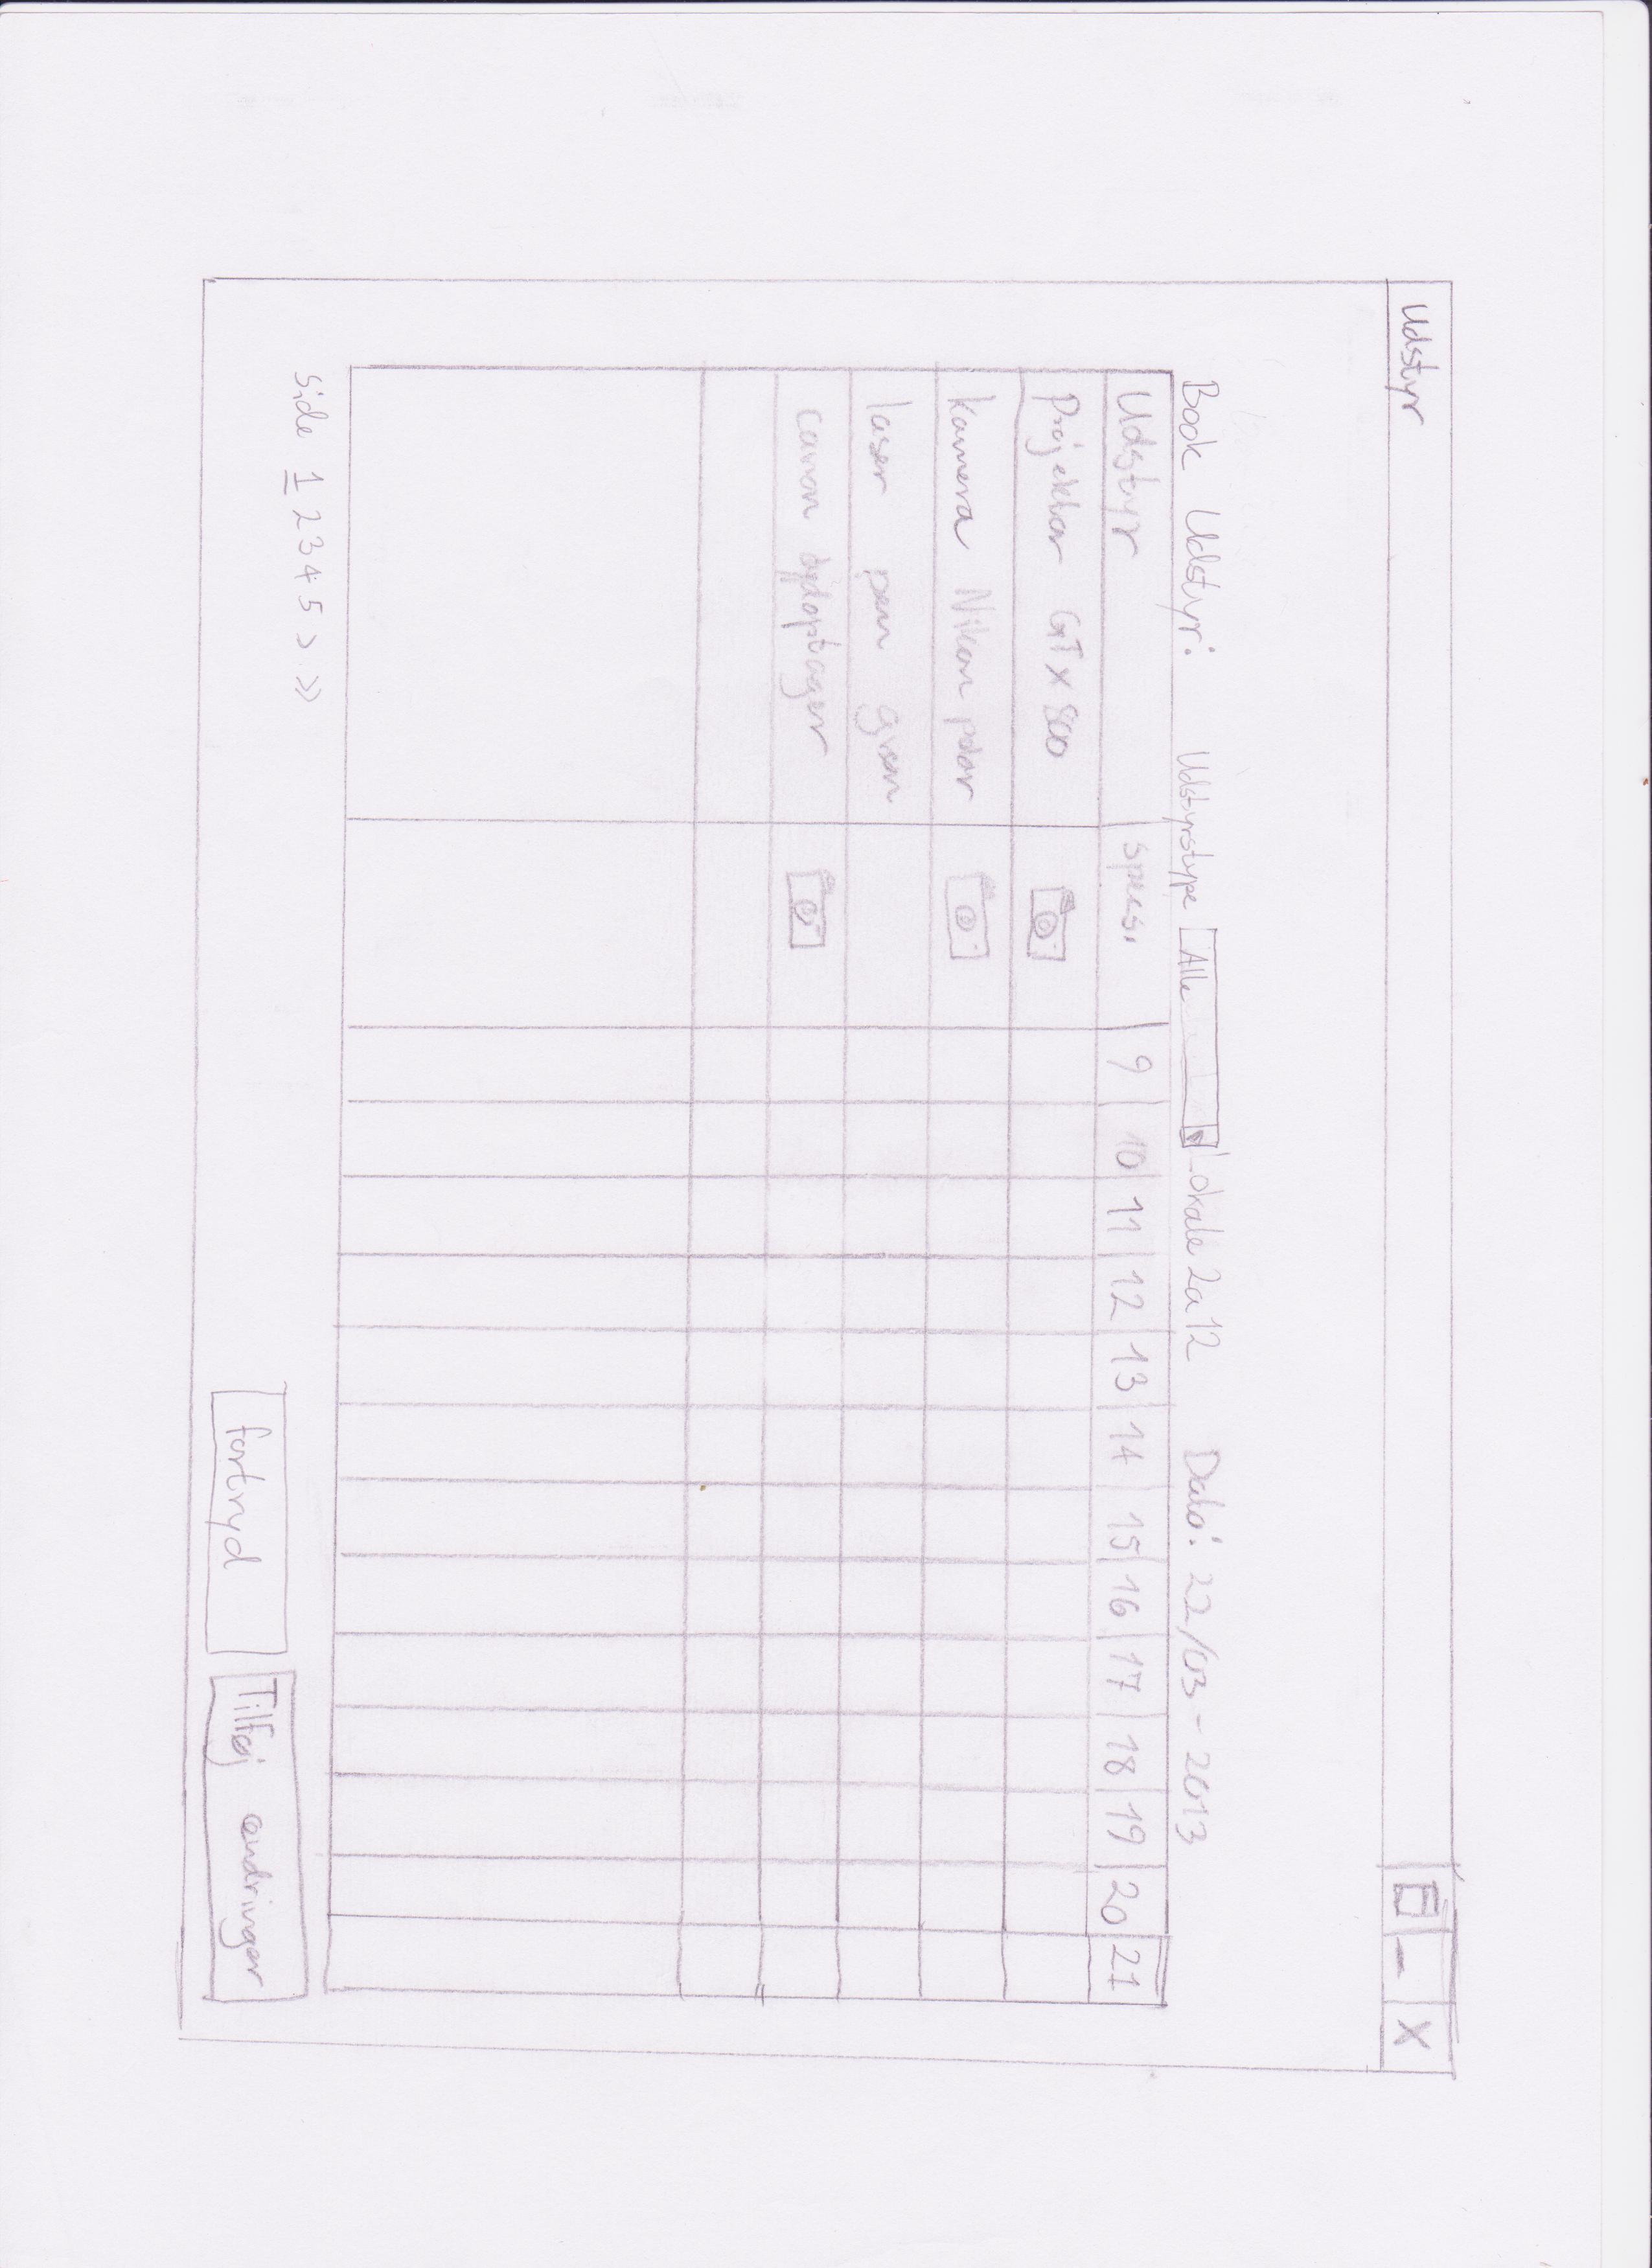 Udstyr - X
Book Udstyr: Udstyrstype Alle Lokale 2a12 Dato: 22/03-2013
Udstyr specs. 9 10 11 12 13 14 15 16 17 18 19 20 21
Projektor GTX 800
kamera Nikon polar
laser pen grøn
canon lydoptager
side 1 2 3 4 5 > >>
fortryd Tilføj ændringer